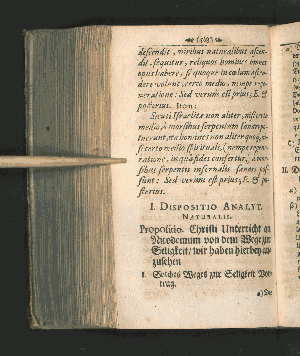 descendit, viribus naturalibus ascen-
dit. sequitur, reliquos homines omnes
opus habere, si quoque in cœlum ascen-
dere volunt, certo medio, nempe rege-
neratione: Sed verum est prius; E. &
posterius. Item:
Sicuti Israëlitæ non aliter, nisi certo
medio, à morsibus serpentum
nisi certo medio spirituali, (nempe regene-
ratione, in quâ fides confertur, à mor-
sibus serpentis infernalis sanari pos-
sunt: Sed verum est prius; E. & po-
sterius.
I. DISPOSITIO ANALYT.
NATURALIS.
Propositio. Christi Unterricht an
Nicodemum von dem Wege zur
Seligkeit/ wir haben hierbey an-
zusehen
1. Solches Weges zur Seligkeit Vor-
trag.